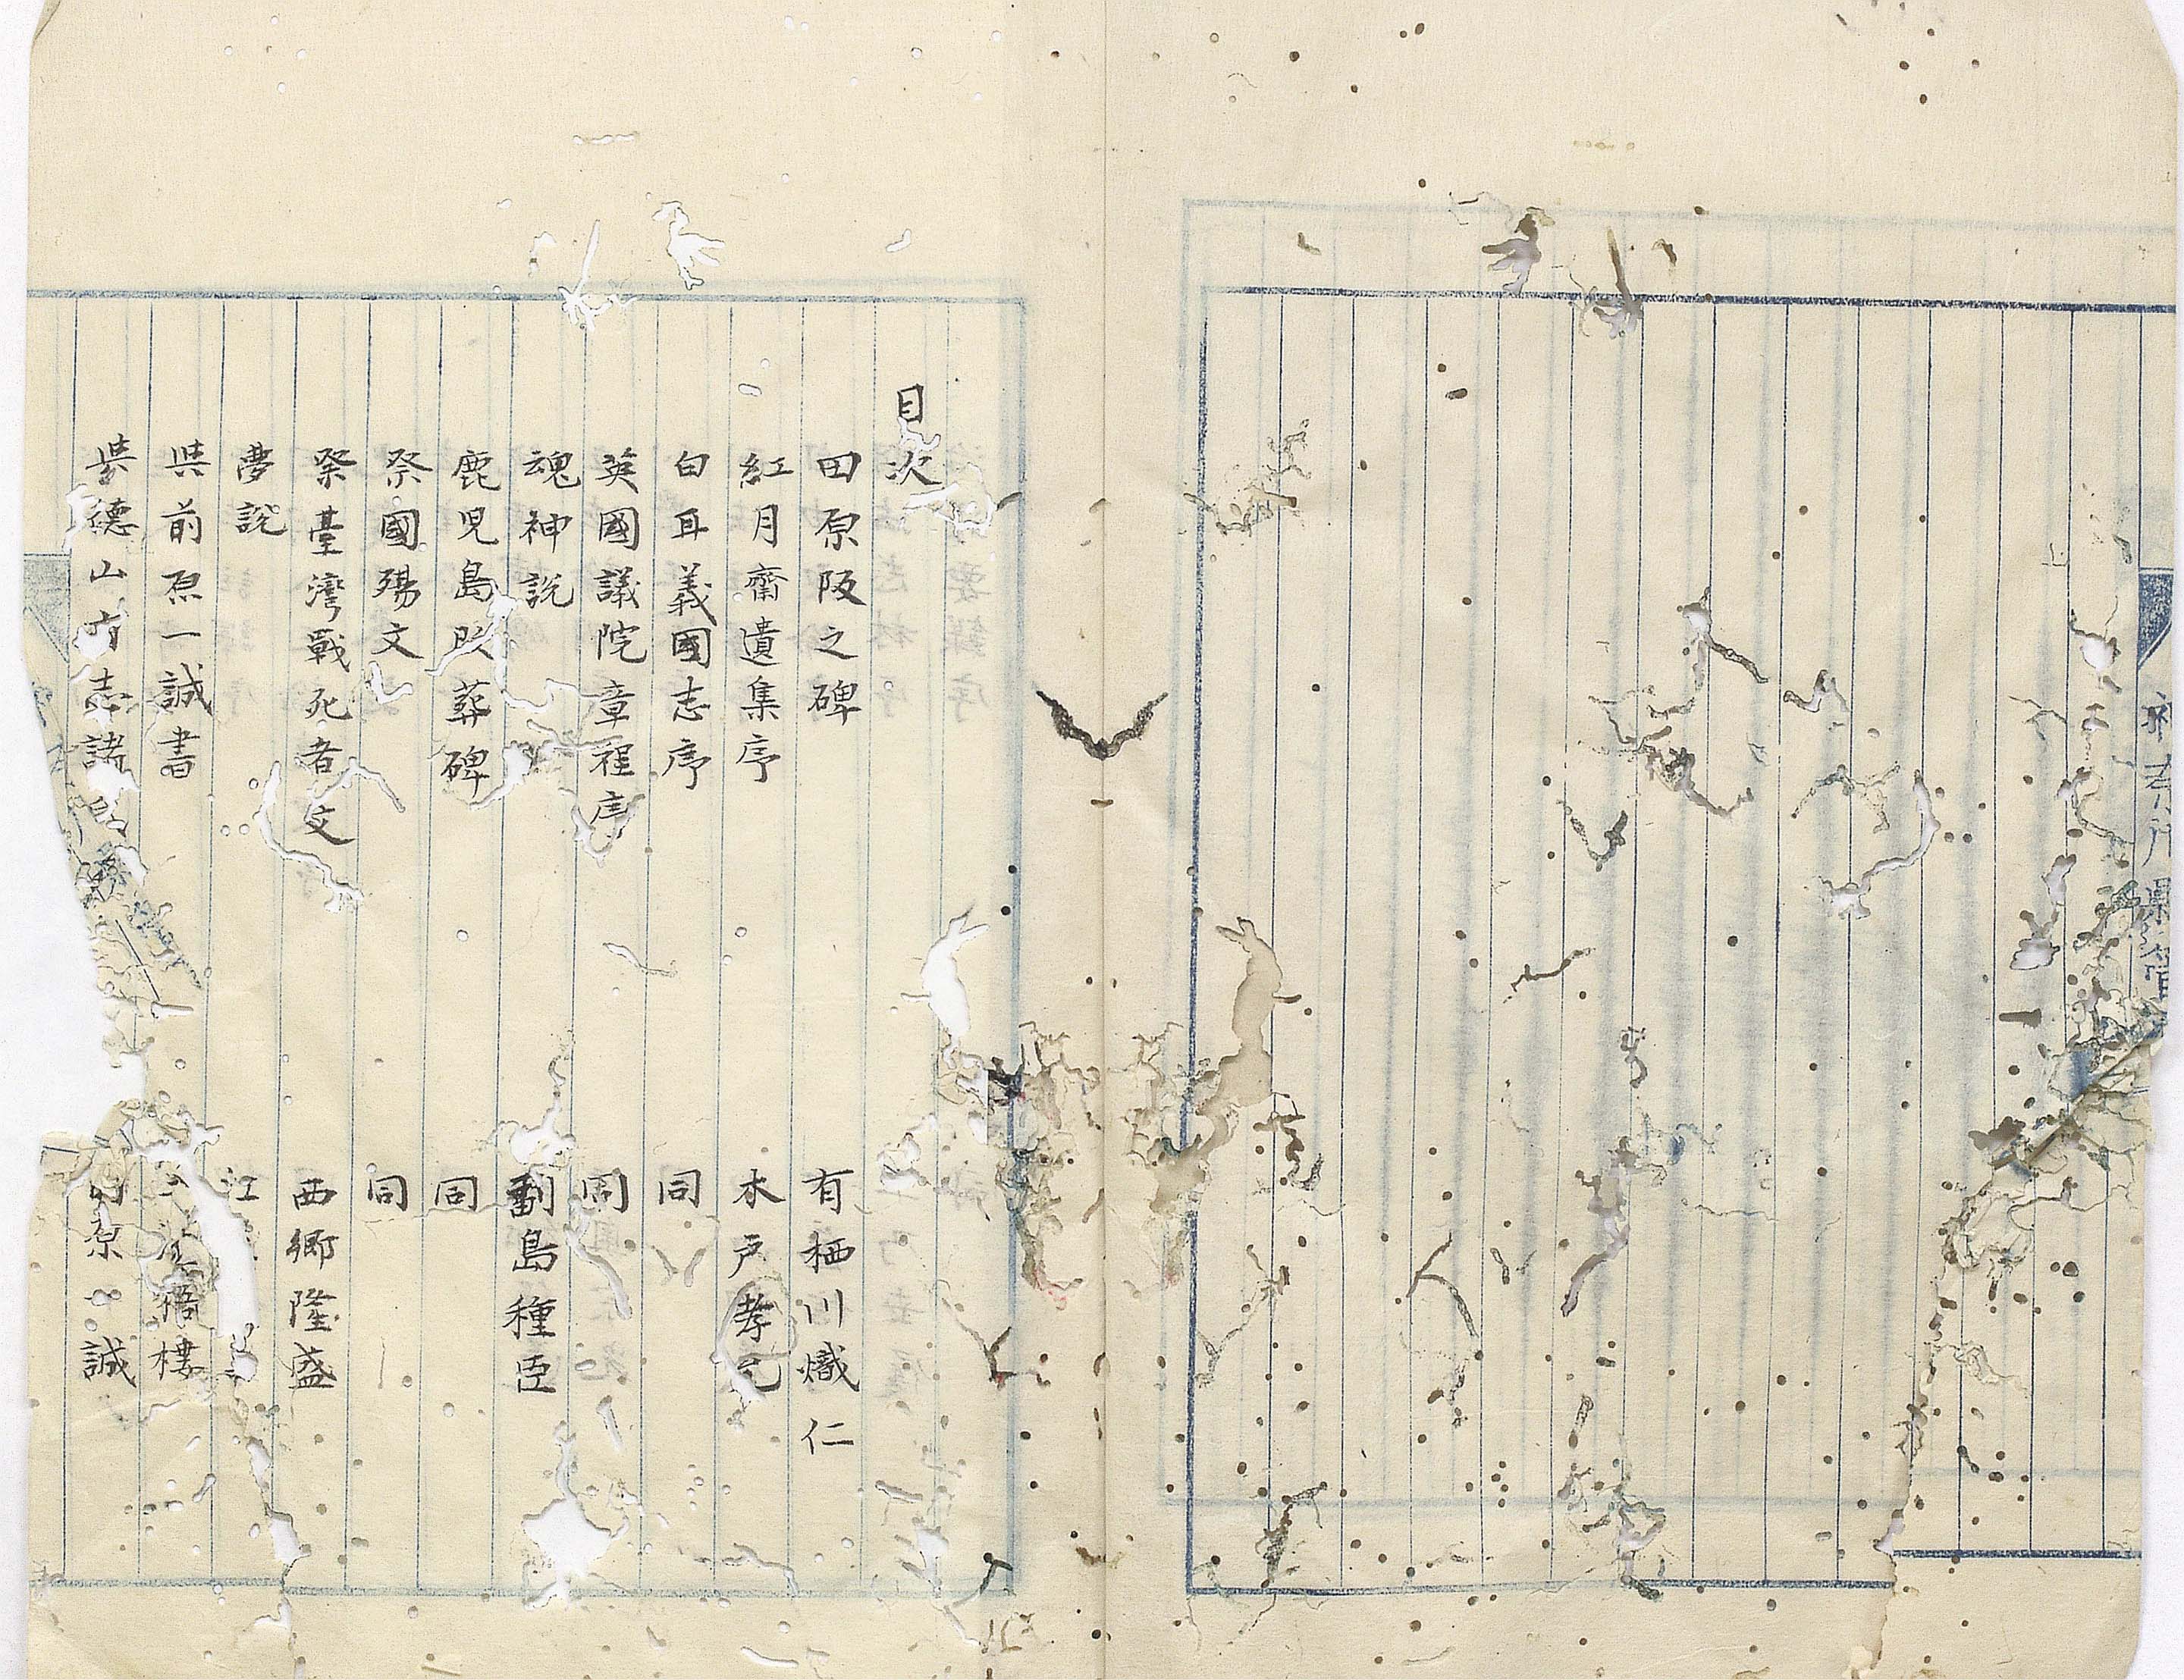 目次
田原阪之碑 有栖川熾仁
紅月齋遺集序 木戸孝允
白耳義國志序 同
英國議院章程序 同
魂神説 副島種臣
鹿児島 葬碑 同
祭國殤文 同
祭臺灣戰死者文 西郷隆盛
夢説 江
與前原一誠書 樓
與德山有志諸 原一誠